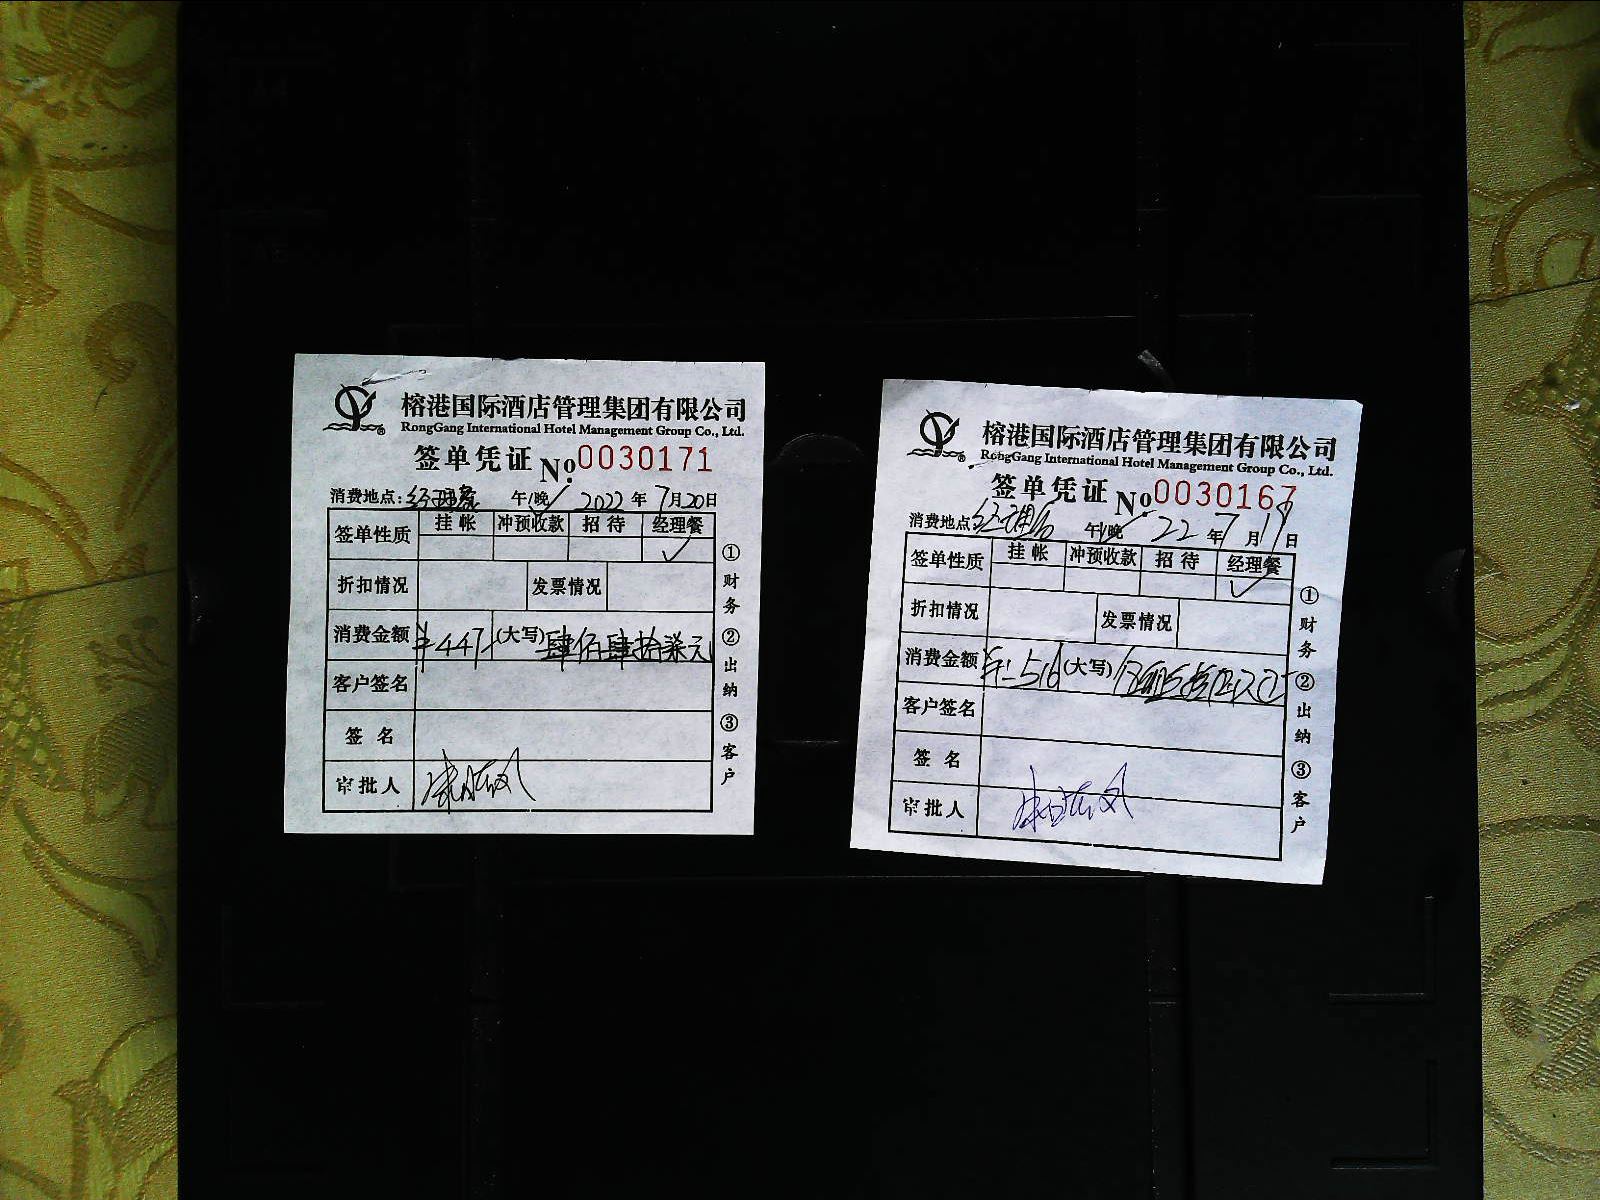 榕港国际酒店管理集团有限公司
RongGang International Hotel Management Group Co., Ltd.
签单凭证 No.0030171
消费地点: 经理餐 午/晚 2022 年 7月20日
签单性质 挂帐 冲预收款 招待 经理餐
✓
折扣情况 发票情况
消费金额 ¥447 (大写) 肆佰肆拾柒元
客户签名
签名
审批人
①财务 ②出纳 ③客户
榕港国际酒店管理集团有限公司
RongGang International Hotel Management Group Co., Ltd.
签单凭证 No.0030167
消费地点: 午/晚 22 年 7 月 日
签单性质 挂帐 冲预收款 招待 经理餐
✓
折扣情况 发票情况
消费金额 516 (大写)
客户签名
签名
审批人
①财务 ②出纳 ③客户